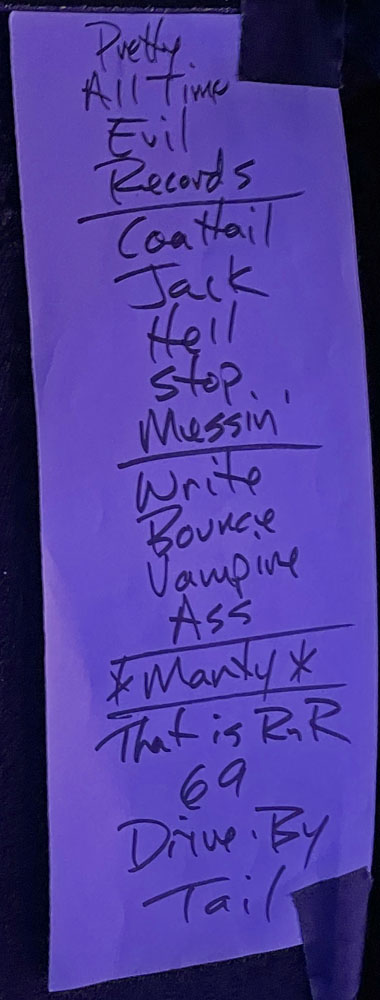 Pretty
All Time
Evil
Records
Coattail
Jack
Hell
Stop
Messin'
Write
Bounce
Vampire
Ass
*Manty*
That is RnR
69
Drive-By
Tail